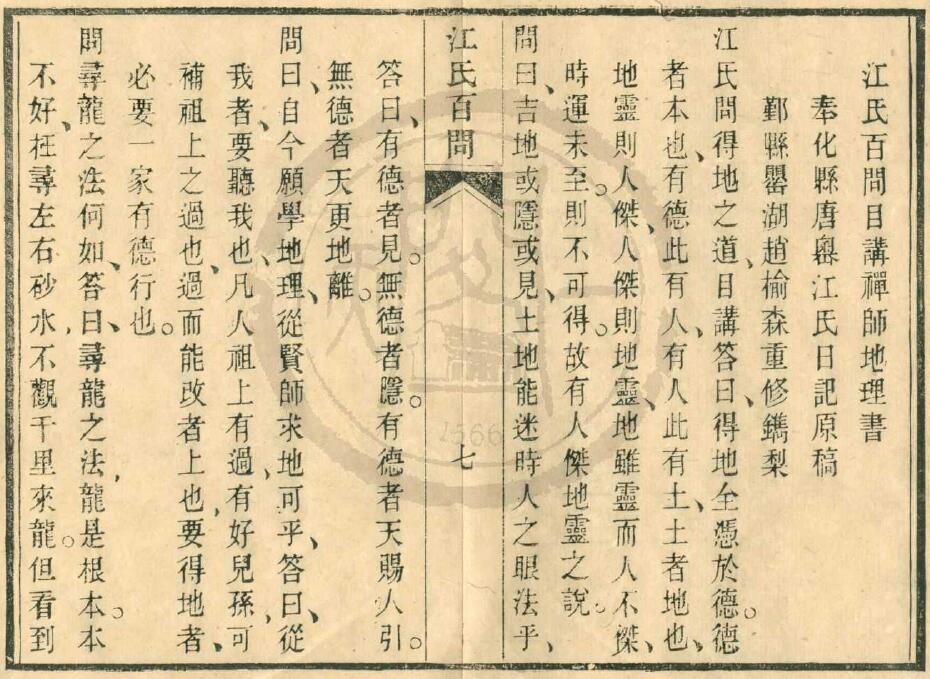 江氏百問目講禪師地理書
奉化縣唐嶴江氏日記原稿
鄞縣罌湖趙榆森重修鐫梨
江氏問得地之道、目講答曰、得地全憑於德。德
者本也、有德此有人、有人此有土、土者地也、
地靈則人傑、人傑則地靈、地雖靈而人不傑、
時運未至。則不可得。故有人傑地靈之說。
問曰、吉地或隱或見、土地能迷時人之眼法乎、
江氏百問
七
答曰、有德者見。無德者隱。有德者天賜人引。
無德者天更地離。
問曰、自今願學地理、從賢師求地可乎、答曰、從
我者、要聽我也、凡人祖上有過、有好兒孫、可
補祖上之過也、過而能改者上也、要得地者、
必要一家有德行也。
問尋龍之法何如、答曰、尋龍之法、龍是根本。本
不好、枉尋左右砂水、不觀千里來龍。但看到
1566